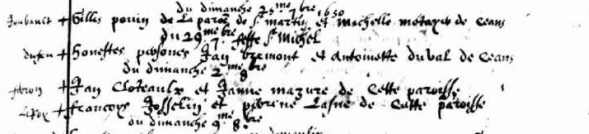 du dimanche 25me 7bre 1650
+ Gilles pouin de la paroe de St martin et michelle motayes de ceans
du 29me 7bre feste St Michel
+ honestes persones Jan bremont et Antoinette duval de ceans
du dimanche 2me 8bre
+ Jan Cloteaulx et Janne mazure de cette paroisse
+ francoys Josselin et perrine Lasne de cette paroisse
du dimanche 9me 8bre